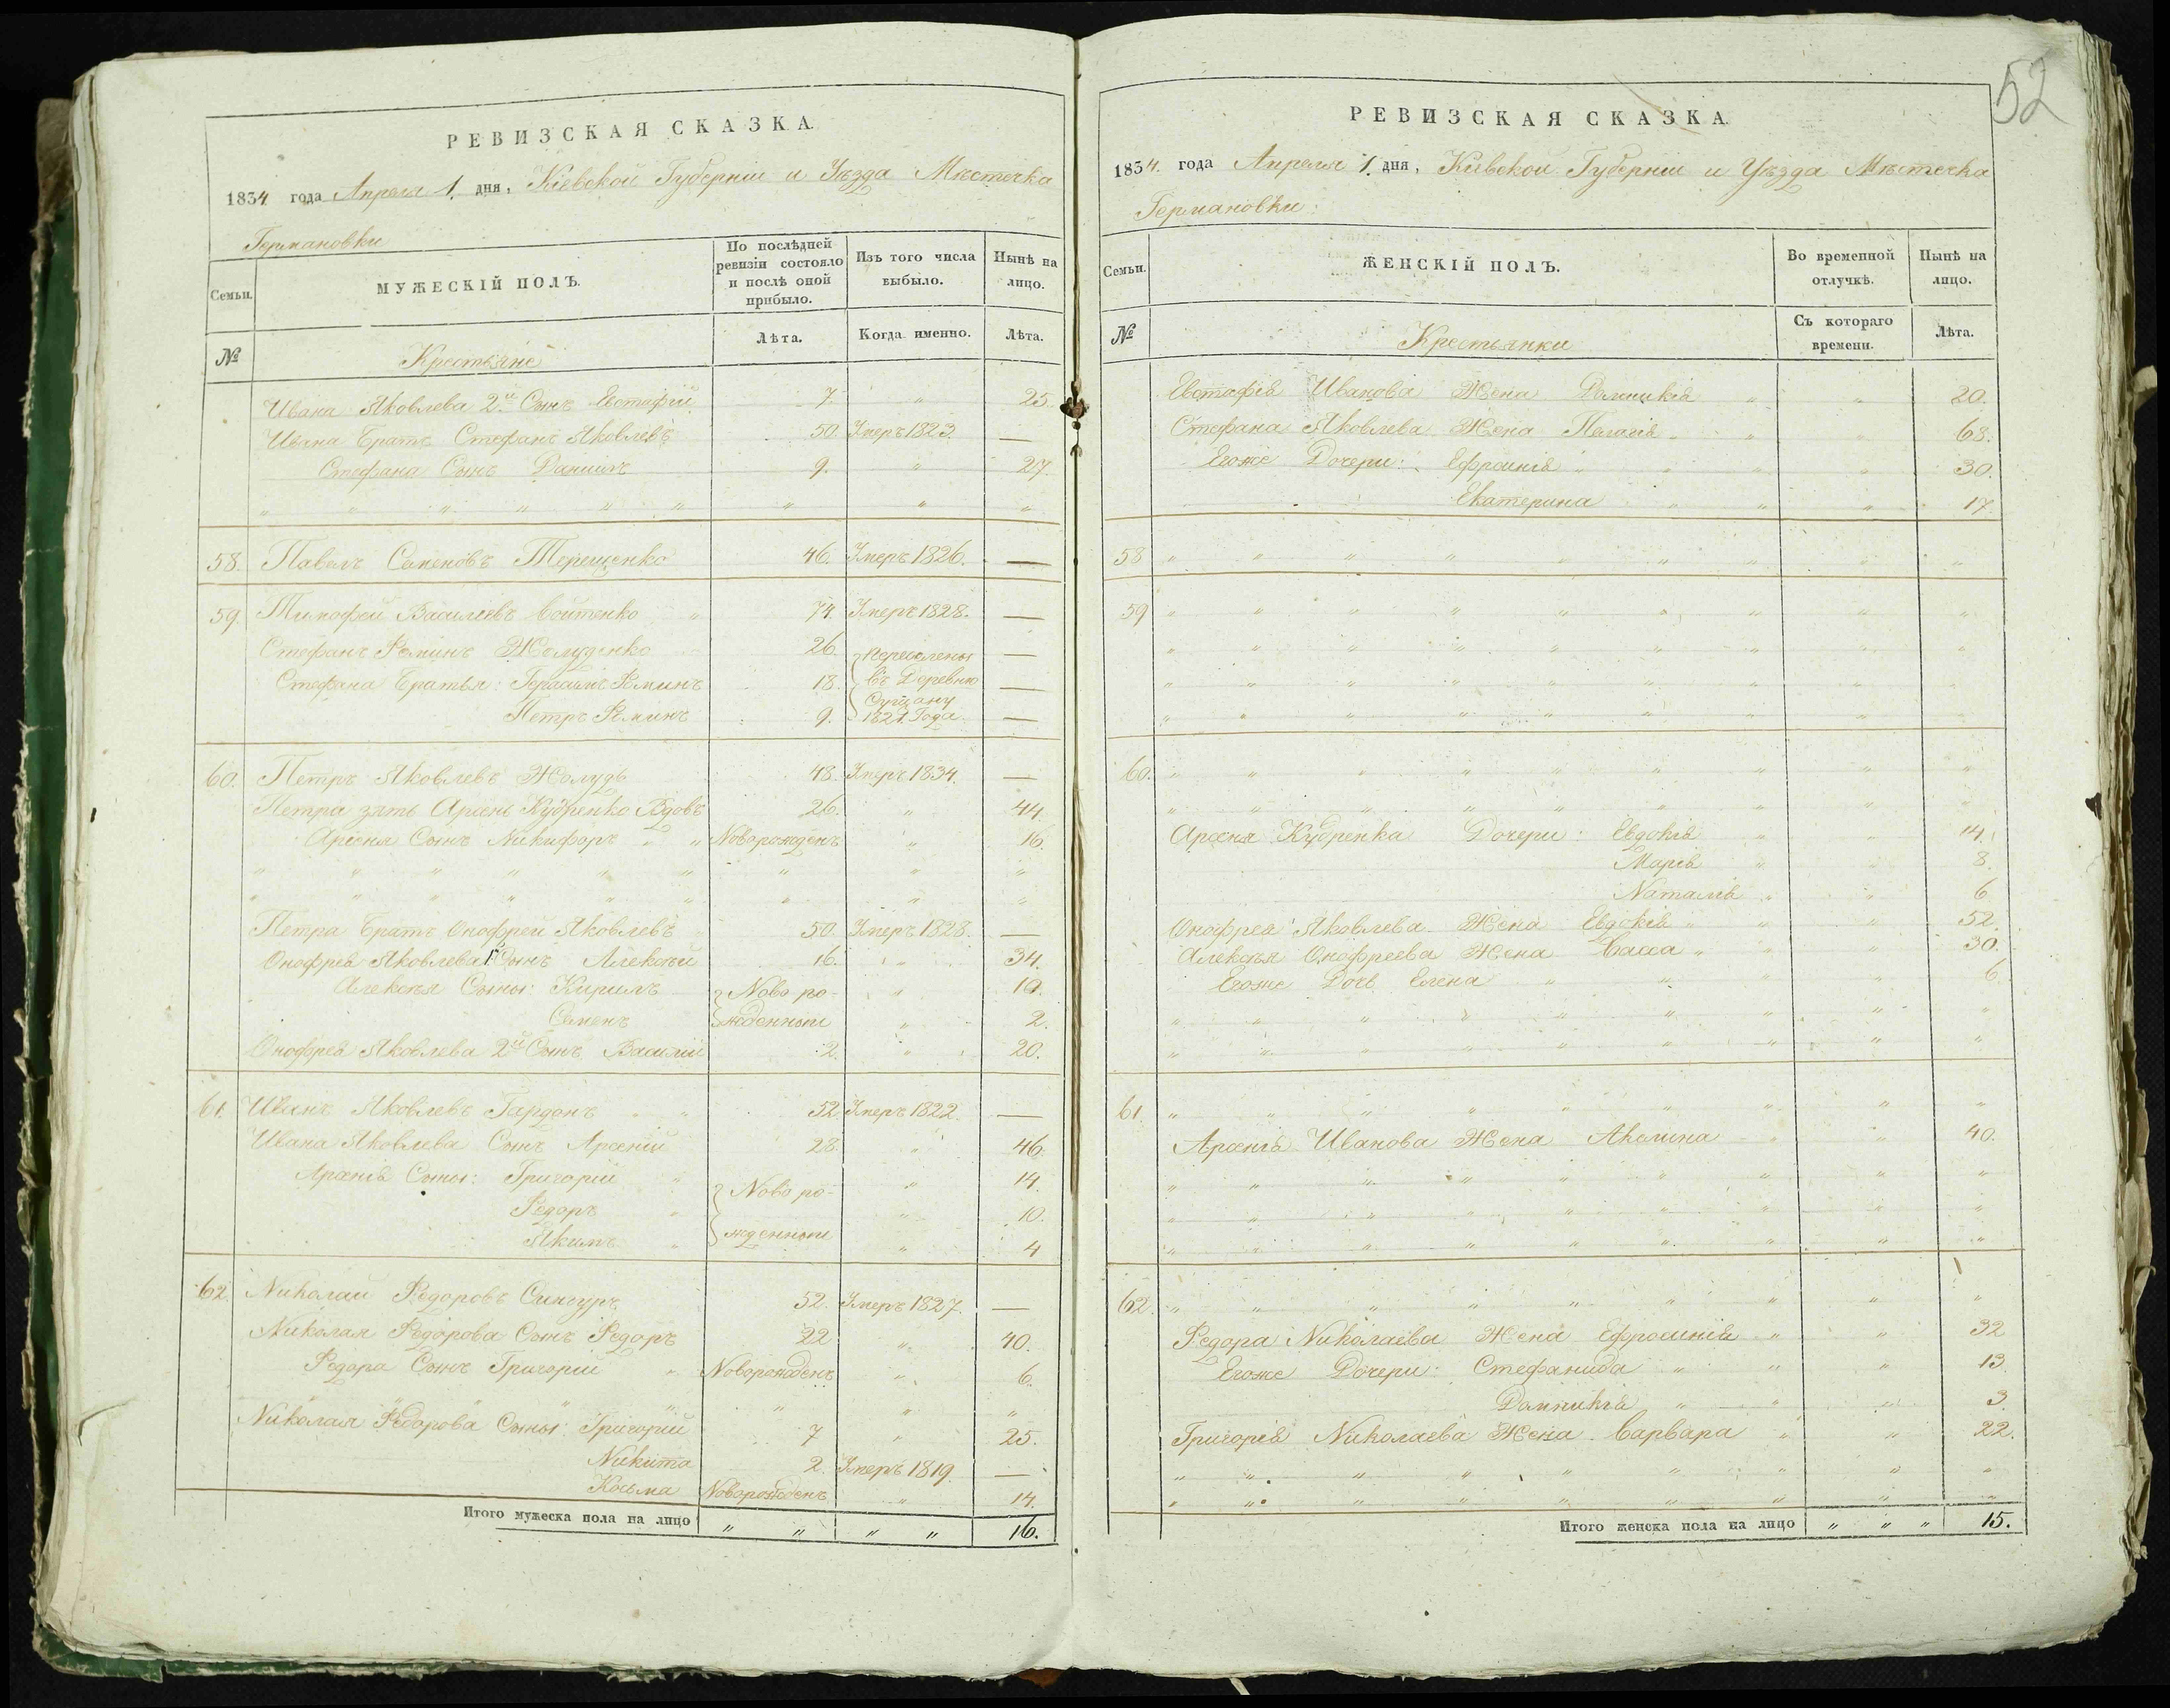 РЕВИЗСКАЯ СКАЗКА
1834 года Апреля 1. дня, Кіевской Губерніи и Уѣзда Мѣстечка
Германовки
Семьи.
МУЖЕСКІЙ ПОЛЪ.
По послѣдней ревизіи состояло и послѣ оной прибыло.
Изъ того числа выбыло.
Нынѣ на лицо.
№
Крестьяне
Лѣта.
Когда именно.
Лѣта.
Ивана Яковлева 2й Сынъ Евстафій 7. " 25.
Ивана Братъ Стефанъ Яковлевъ 50 Умеръ 1823. —
Стефана Сынъ Даниилъ 9. " 27.
" " " " " " " " "
58. Павелъ Семеновъ Терещенко 46. Умеръ 1826. —
59. Тимофей Василіевъ Войтенко " 74. Умеръ 1828. —
Стефанъ Фоминъ Желуденко 26. Переселены —
Стефана Братья: Герасимъ Фоминъ 18. въ Деревню —
Петръ Фоминъ 9. 1821. Года. —
60. Петръ Яковлевъ Жолудь 48. Умеръ 1834. —
Петра зять Арсень Кудренко Вдовъ 26. " 44.
Арсеня Сынъ Никифоръ " " Новорожденъ " 16.
" " " " " " " " "
" " " " " " " " "
Петра Братъ Онофрей Яковлевъ 50. Умеръ 1828. —
Онофрея Яковлева Сынъ Алексѣй 16. " 34.
Алексѣя Сыны: Кирилъ Ново ро- " 10.
Семенъ жденныи " 2.
Онофрея Яковлева 2й Сынъ Василій 2. " 20.
61. Иванъ Яковлевъ Гардонъ " " 52. Умеръ 1822. —
Ивана Яковлева Сынъ Арсеній 28. " 46.
Арсенія Сыны: Григорій " Ново ро- " 14.
Федоръ " " 10.
Якимъ " жденныи " 4
62. Николай Федоровъ 52. Умеръ 1827. —
Николая Федорова Сынъ Федоръ 22 " 40.
Федора Сынъ Григорій " Новорожденъ " 6.
" " " " " " "
Николая Федорова Сыны: Григорій 7 " 25.
Никита 2. Умеръ 1819. —
Косьма Новорожденъ " 14.
Итого мужеска пола на лицо " " " " 16.
52
РЕВИЗСКАЯ СКАЗКА
1834. года Апреля 1. дня, Кіевской Губерніи и Уѣзда Мѣстечка
Германовки
Семьи.
ЖЕНСКІЙ ПОЛЪ.
Во временной отлучкѣ.
Нынѣ на лицо.
№
Крестьянки
Съ котораго времени.
Лѣта.
Евстафія Иванова Жена Домникія " " 20.
Стефана Яковлева Жена Пелагія " " " 68.
Егоже Дочери: Ефросинія " " " " 30.
Екатерина " " " 17.
58 " " " " " " " " "
59 " " " " " " " " "
" " " " " " " " "
" " " " " " " " "
" " " " " " " " "
60. " " " " " " " " "
" " " " " " " " "
Арсеня Кудренка Дочери: Евдокія " " 14.
Марія " " 8.
Наталія " " 6
Онофрея Яковлева Жена Евдокія " " " 52.
Алексѣя Онофреева Жена Васса " " " 30.
Егоже Дочь Елена " " " " 6
" " " " " " " " "
" " " " " " " " "
61 " " " " " " " " "
Арсенія Иванова Жена Акелина " " 40.
" " " " " " " " "
" " " " " " " " "
" " " " " " " " "
62. " " " " " " " " "
Федора Николаева Жена Ефросинія " " 32
Егоже Дочери: Стефанида " " " 13.
Домникія " " " 3.
Григорія Николаева Жена Варвара " " 22.
" " " " " " " " "
" " " " " " " " "
Итого женска пола на лицо " " " 15.